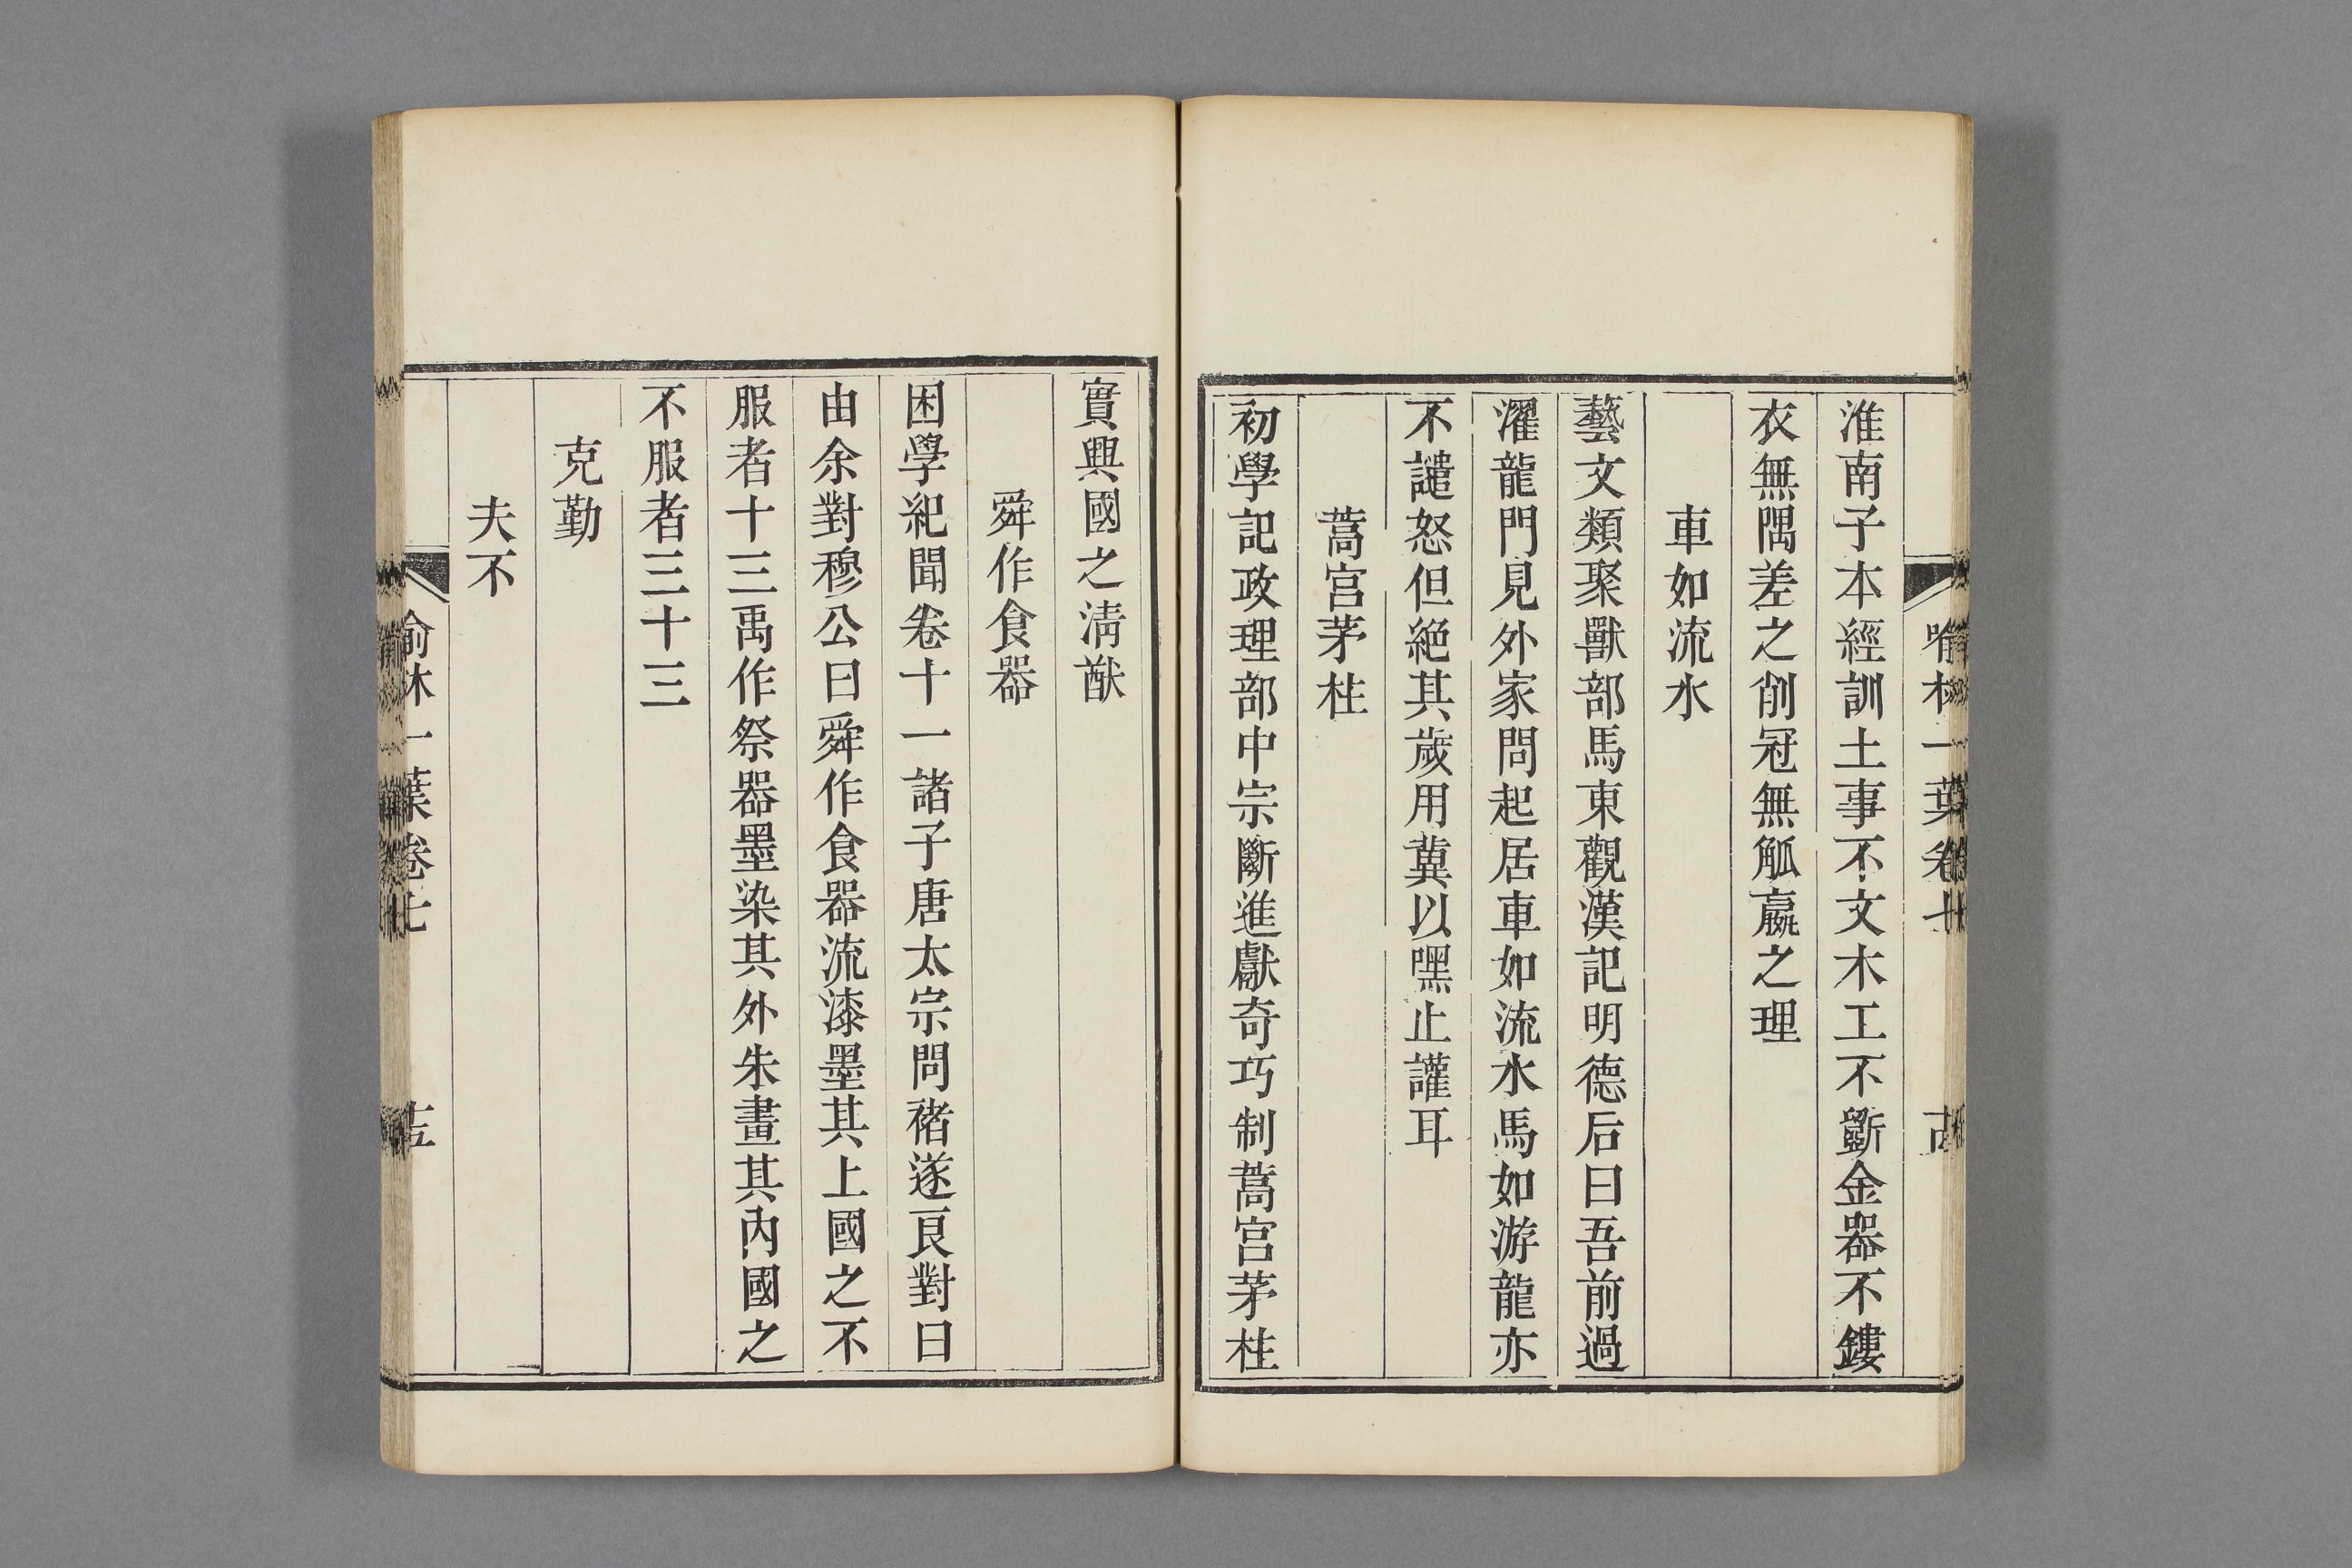 淮南子本經訓土事不文木工不斵金器不鏤
衣無隅差之削冠無觚蠃之理
車如流水
藝文類聚獸部馬東觀漢記明德后曰吾前過
濯龍門見外家問起居車如流水馬如游龍亦
不譴怒但絕其歲用冀以嘿止讙耳
蒿宮茅柱
初學記政理部中宗斷進獻奇巧制蒿宮茅柱
實興國之淸猷
舜作食器
困學紀聞卷十一諸子唐太宗問褚遂良對曰
由余對穆公曰舜作食器流漆墨其上國之不
服者十三禹作祭器墨染其外朱畫其內國之
不服者三十三
克勤
夫不
喻林一葉卷七